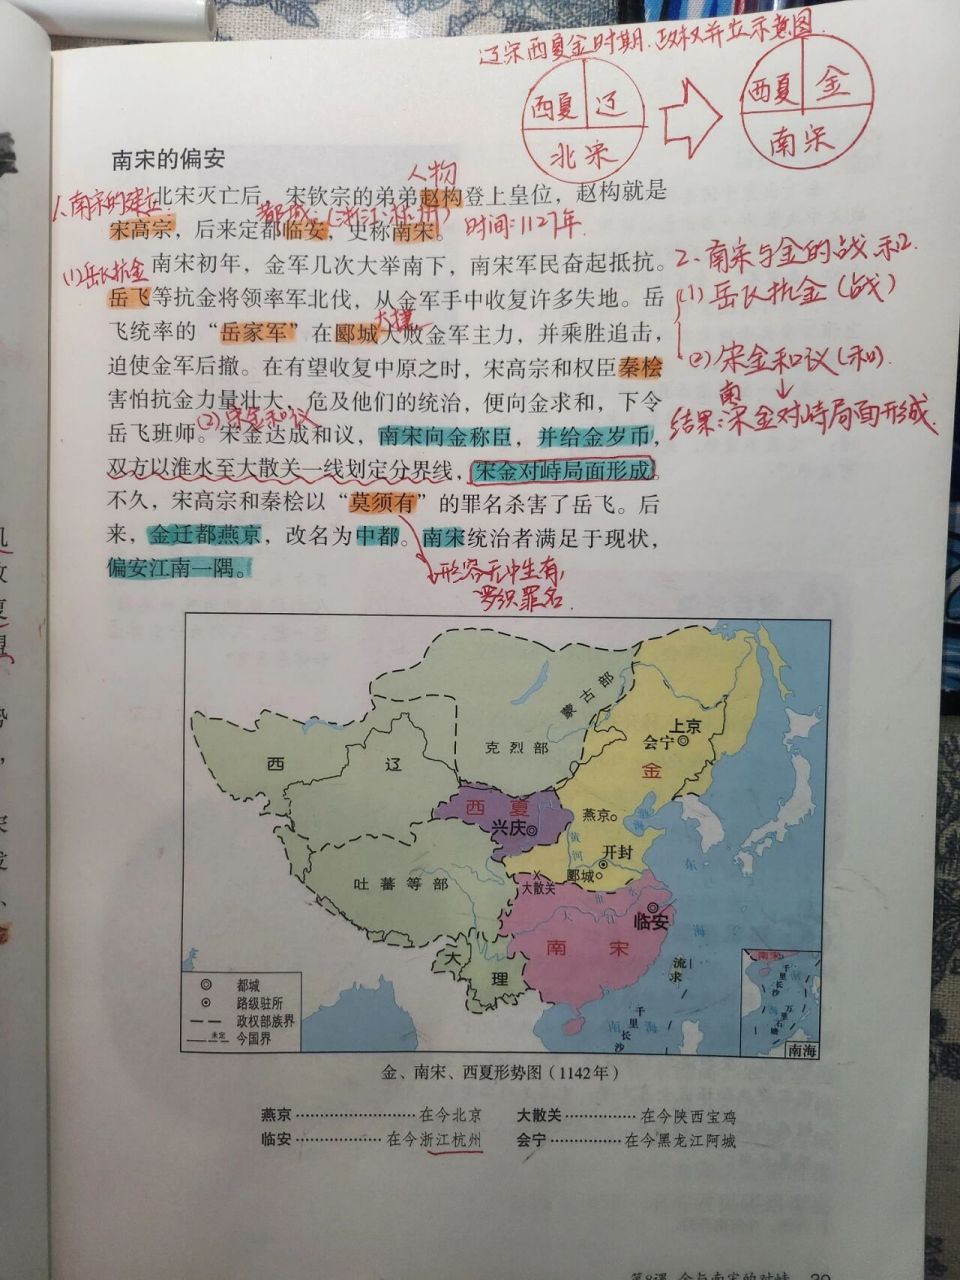 辽宋西夏金时期政权并立示意图
西夏 辽
北宋
西夏 金
南宋
南宋的偏安
人物
1、南宋的建立
北宋灭亡后，宋钦宗的弟弟赵构登上皇位，赵构就是
都城:(浙江杭州)
宋高宗，后来定都临安，史称南宋。
时间:1127年
(1)岳飞抗金
南宋初年，金军几次大举南下，南宋军民奋起抵抗。
岳飞等抗金将领率军北伐，从金军手中收复许多失地。岳
大捷
飞统率的“岳家军”在郾城大败金军主力，并乘胜追击，
迫使金军后撤。在有望收复中原之时，宋高宗和权臣秦桧
害怕抗金力量壮大，危及他们的统治，便向金求和，下令
(2)宋金和议
岳飞班师。宋金达成和议，南宋向金称臣，并给金岁币，
双方以淮水至大散关一线划定分界线，宋金对峙局面形成。
不久，宋高宗和秦桧以“莫须有”的罪名杀害了岳飞。后
来，金迁都燕京，改名为中都。南宋统治者满足于现状，
偏安江南一隅。
形容无中生有，
罗织罪名.
2、南宋与金的战和
(1)岳飞抗金(战)
(2)宋金和议(和)
南
结果:宋金对峙局面形成.
蒙古部
克烈部
上京
会宁
金
西 辽
西夏
兴庆
燕京
渤海
黄河
开封
郾城
大散关
东
海
吐蕃等部
淮水
大江
临安
南 宋
大 理
流求
南海
千里长沙
南宋
千里长沙
万里石塘
南海
都城
路级驻所
政权部族界
未定
今国界
金、南宋、西夏形势图（1142年）
燕京……………………在今北京
大散关……………在今陕西宝鸡
临安………………在今浙江杭州
会宁…………………在今黑龙江阿城
第8课 金与南宋的对峙 39